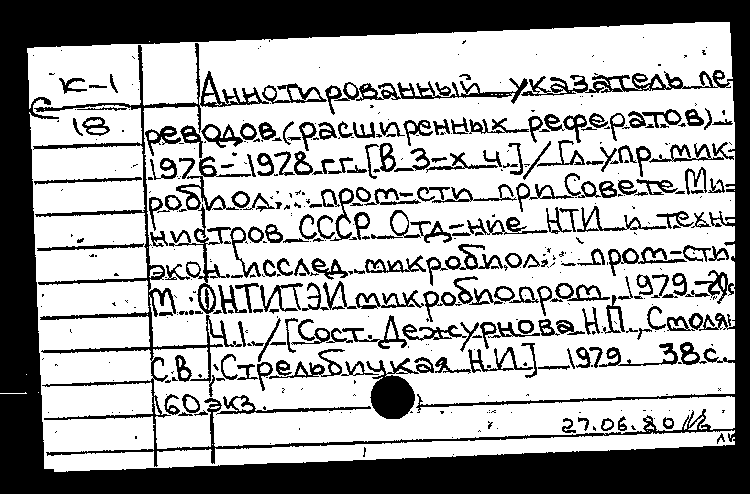 К-1
18
Аннотированный указатель пе-
реводов (расширенных рефератов):
1976-1978 гг. [В 3-х ч.] / Гл. упр. мик-
робиол. пром-сти при Совете Ми-
нистров СССР. Отд-ние НТИ и техн-
экон. исслед. микробиол. пром-сти.
М.: ОНТИТЭИмикробиопром, 1979.-20с
Ч.1. / [Сост. Дежурнова Н.П., Смоля
С.В., Стрельбицкая Н.И.] 1979. 38 с.
160 экз.
27.06.80